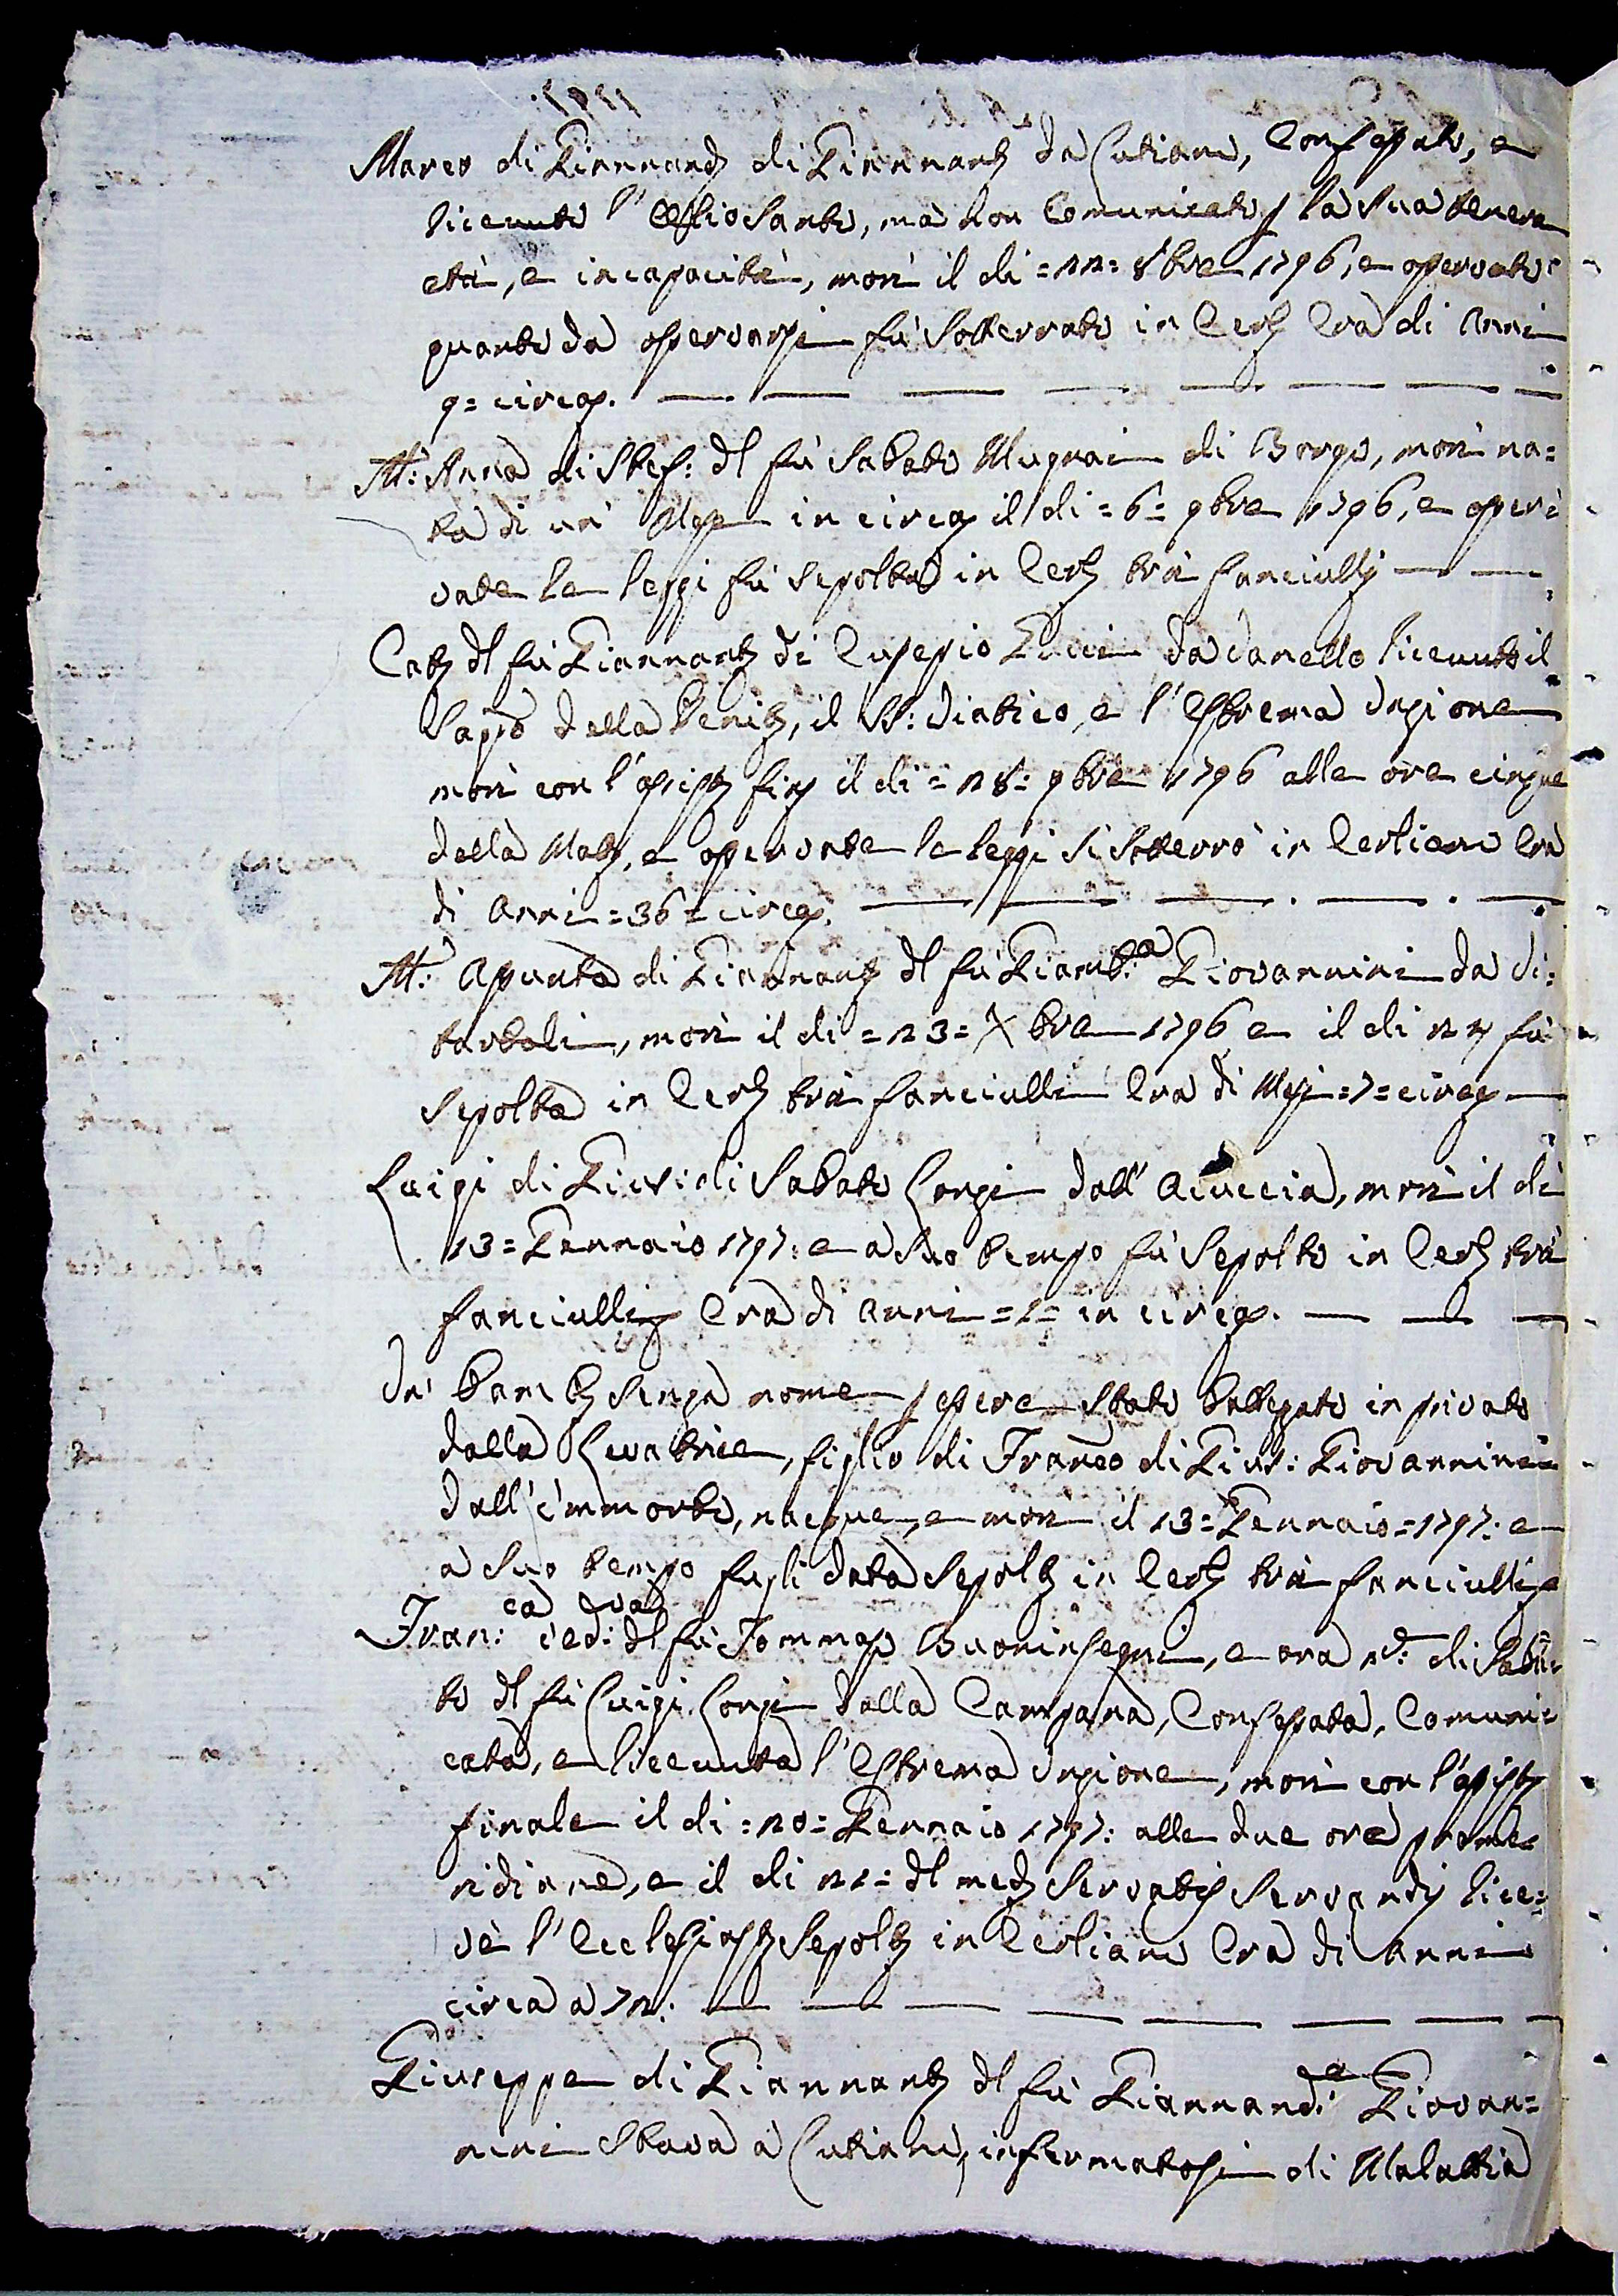 Marco di Giannand: di Giannant: da Lutiano, Confessato, e
ricevuto l'Olio Santo, mà non Comunicato p la sua tenera
età, e incapacità, morì il dì =22= 8bre 1796, e osservato
quanto da osservarsi fù Sotterrato in Cert: Era di Anni
9= circa.
M: Anna di Stef: dl fù Sabato Mugnai di Borgo, morì na=
ta di un' Mese in circa il dì =6= 9bre 1796, e osser=
vate le leggi fù Sepolta in Cert: trà fanciulli
Cat: dl fù Giannant: di Eusepio Pucci da Vanello ricevuto il
Sagro della Penit:, il SS: Viatico, e l'Estrema Unzione
morì con l'assist: fin: il dì =28= 9bre 1796 alle ore cinque
della Matt:, e osservate le leggi si Sotterrò in Certiano Era
di Anni =36= circa.
M: Assunta di Giannant: dl fù Giamb:a Giovannini da Vi=
tartoli, morì il dì =23= Xbre 1796 e il dì 24 fù
Sepolta in Cert: trà fanciulli Era di Mesi =7= circa
Luigi di Gius: di Sabato Longi dall' Acuccia, morì il dì
13= Gennaio 1797: e a Suo tempo fù Sepolto in Cert: trà
fanciulli Era di Anni =1= in circa.
Un' Bamb: senza nome p essere stato Battezzato in privato
dalla Levatrice, figlio di Franco di Gius: Giovannini
dall' Immorto, nacque, e morì il 13= Gennaio =1797: e
a Suo tempo fugli data Sepolt: in Cert: trà fanciulli
Fran:ca Ved:va dl fù Tommaso Buoninsegni, e ora di Saba=
to dl fù Luigi Longi dalla Campana, Confessata, Comuni=
cata, e ricevuta l'Estrema Unzione, morì con l'assist:
finale il dì =20= Gennaio 1797: alle due ore pome=
ridiane, e il dì 21= dl med: Servatis Servandis rice=
vè l'Ecclesiast: Sepolt: in Certiano Era di Anni
circa a 72:
Giuseppe di Giannant: dl fù Giannand:a Giovan=
nini Stava a Lutiano, infermatosi di Malattia